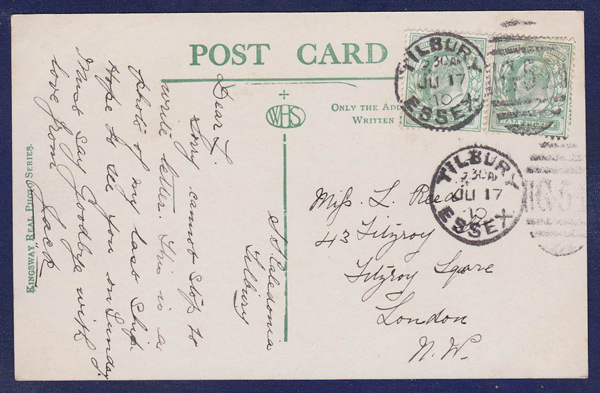 POST CARD
WHS
ONLY THE
WRITTEN
TILBURY
JU 17
10
ESSEX
TILBURY
JU 17
10
ESSEX
Miss L. Reed
43 Fitzroy
Fitzroy Square
London
N.W.
SS Caledonia
Tilbury
Dear L.
Sorry cannot stop to
write letter. This is a
photo of my last ship.
Hope to see you on Sunday
Must say Goodbye with
love from
Jack
KINGSWAY REAL PHOTO SERIES.